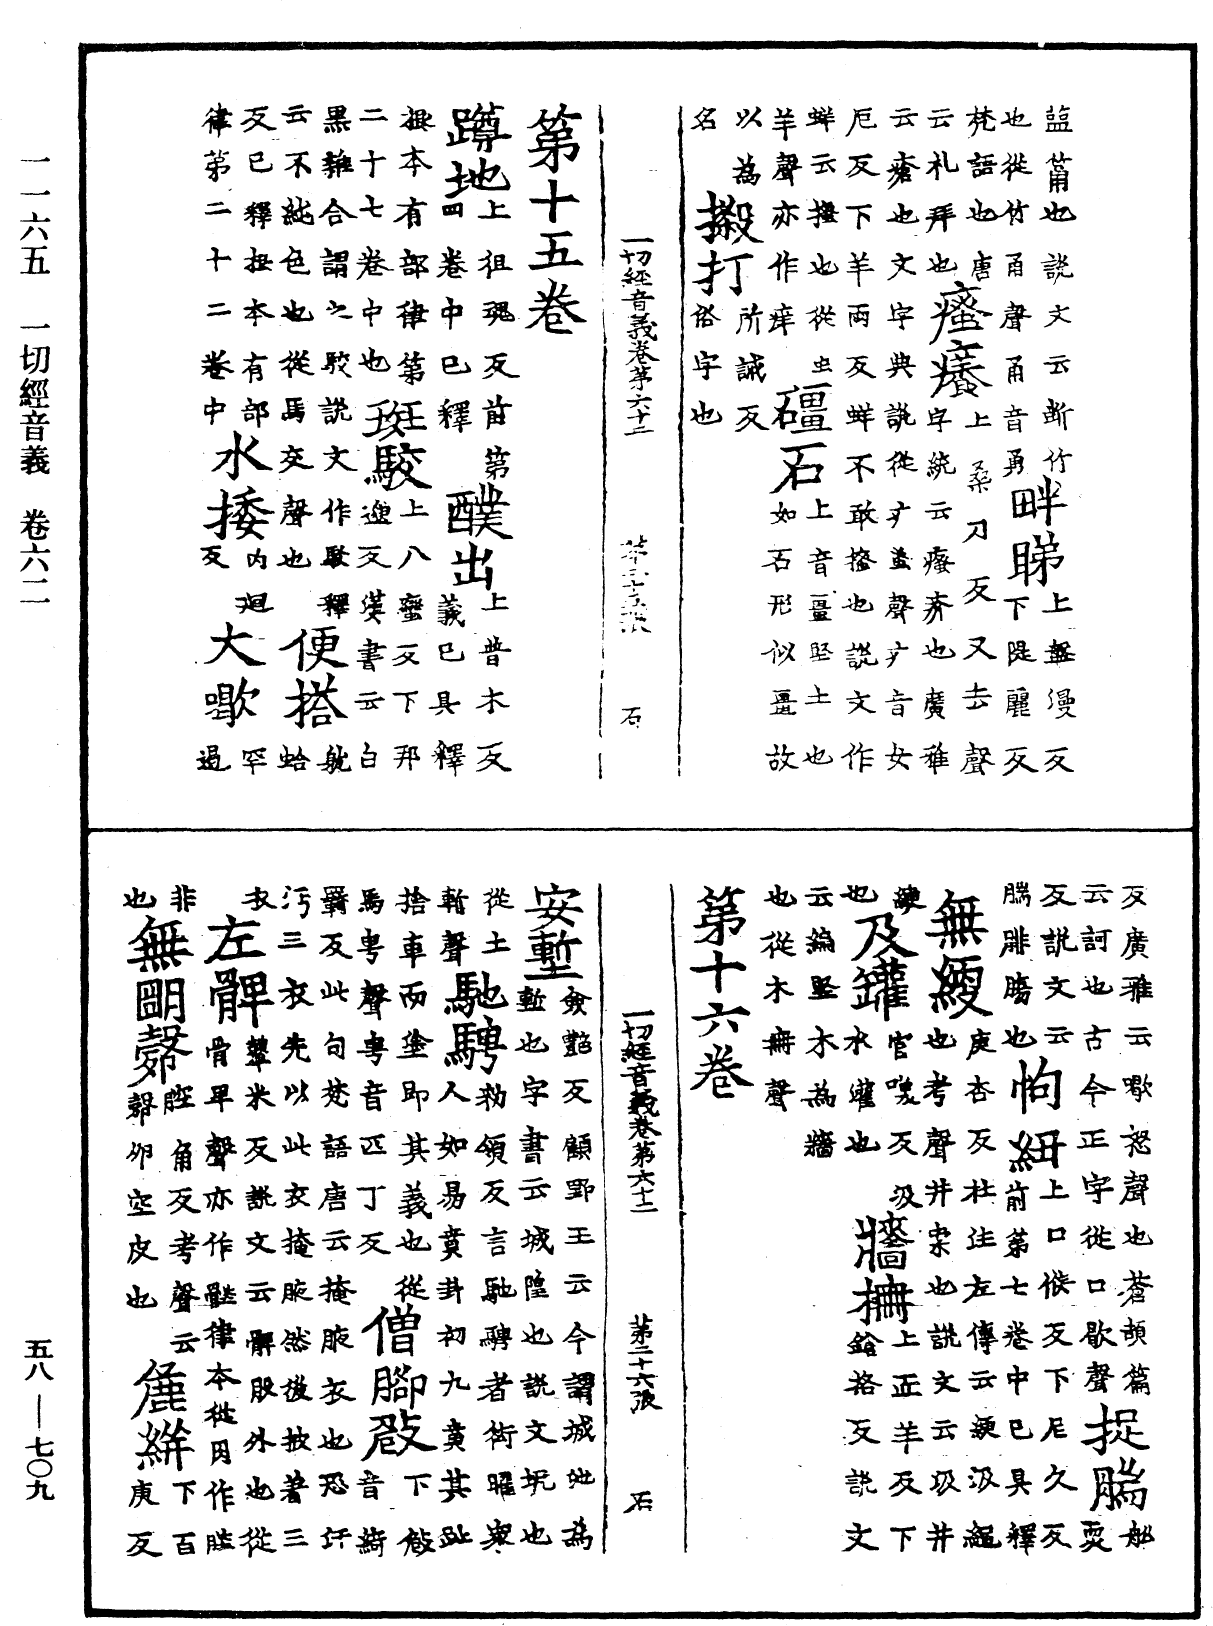 一一六五　一切經音義　卷六二
五八——七〇九
筩也說文云斷竹
也從竹甬聲甬音勇
畔睇
上盤漫反
下隄麗反
梵語也唐
云札拜也
瘙癢
上桑刀反又去聲
字統云瘙疥也廣雅
云瘡也文字典說從疒蚤聲疒音女
厄反下羊兩反蛘不敢搔也說文作
蛘云搔也從虫
羊聲亦作痒
礓石
上音畺堅土也
如石形似畺故
以為
名
搬打
所誡反
俗字也
一切經音義卷第六十二　第二十五張　石
第十五卷
蹲地
上徂魂反前第
四卷中已釋
醭出
上普木反
義已具釋
根本有部律第
二十七卷中也
斑駮
上八蠻反下邦
邈反漢書云白
黑雜合謂之駮說文作駁釋
云不純色也從馬交聲也
便搭
躭
蛤
反已釋根本有部
律第二十二卷中
水捼
內迴
反
大㘔
罕
過
反廣雅云㘔怒聲也蒼頡篇
云訶也古今正字從口歇聲
捉腨
船
耎
反說文云
腨腓膓也
怐紐
上口候反下尼久反
前第七卷中已具釋
無綆
庚杏反杜注左傳云綆汲繩
也考聲井索也說文云汲井
綆
也
及罐
官喚反汲
水罐也
牆柵
上匠羊反下
鎗格反說文
云編堅木為牆
也從木冊聲
第十六卷
一切經音義卷第六十二　第二十六張　石
安塹
僉豔反顧野王云今謂城池為
塹也字書云城隍也說文坑也
從土
斬聲
馳騁
勑領反言馳騁者衒曜衆
人如易賁卦初九賁其趾
捨車而塗即其義也從
馬甹聲甹音匹丁反
僧腳敧
下敧
音綺
羈反此句梵語唐云掩腋衣也恐汗
汚三衣先以此衣掩腋然後披著三
衣
左髀
鼙米反說文云髀股外也從
骨卑聲亦作䏶律本從月作䏶
非
也
無
腔角反考聲云
卵空皮也
麁絣
下百
庚反